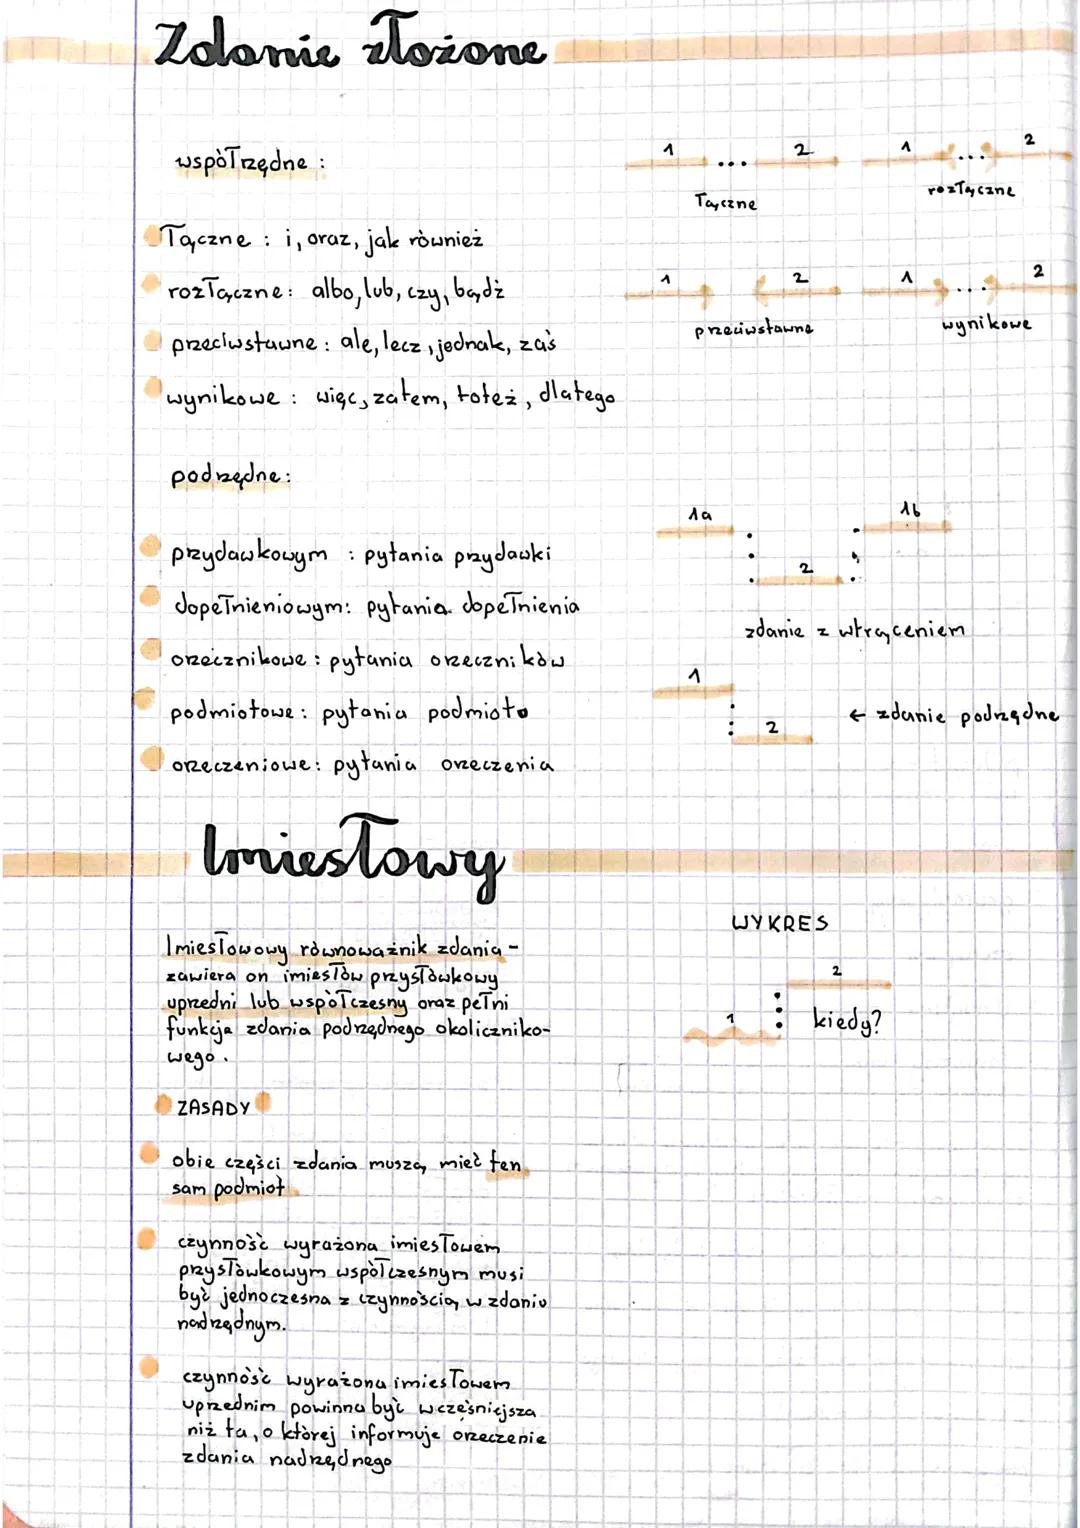 Zdanie złożone
współrzędne :
1 ... 2
łączne
1 ... 2
rozłączne
łączne : i, oraz, jak również
rozłączne: albo, lub, czy, bądź
przeciwstawne : ale, lecz, jednak, zaś
wynikowe : więc, zatem, toteż, dlatego
1 2
przeciwstawne
1 ... 2
wynikowe
podrzędne:
przydawkowym : pytania przydawki
dopełnieniowym: pytania dopełnienia
orzecznikowe : pytania orzeczników
podmiotowe: pytania podmiotu
orzeczeniowe: pytania orzeczenia
1a 1b
2
zdanie z wtrąceniem
1
2
← zdanie podrzędne
Imiesłowy
Imiesłowowy równoważnik zdania -
zawiera on imiesłów przysłówkowy
uprzedni lub współczesny oraz pełni
funkcja zdania podrzędnego okoliczniko-
wego.
WYKRES
2
1
kiedy?
ZASADY
obie części zdania muszą mieć ten
sam podmiot
czynność wyrażona imiesłowem
przysłówkowym współczesnym musi
być jednoczesna z czynnością w zdaniu
nadrzędnym.
czynność wyrażona imiesłowem
uprzednim powinna być wcześniejsza
niż ta, o której informuje orzeczenie
zdania nadrzędnego